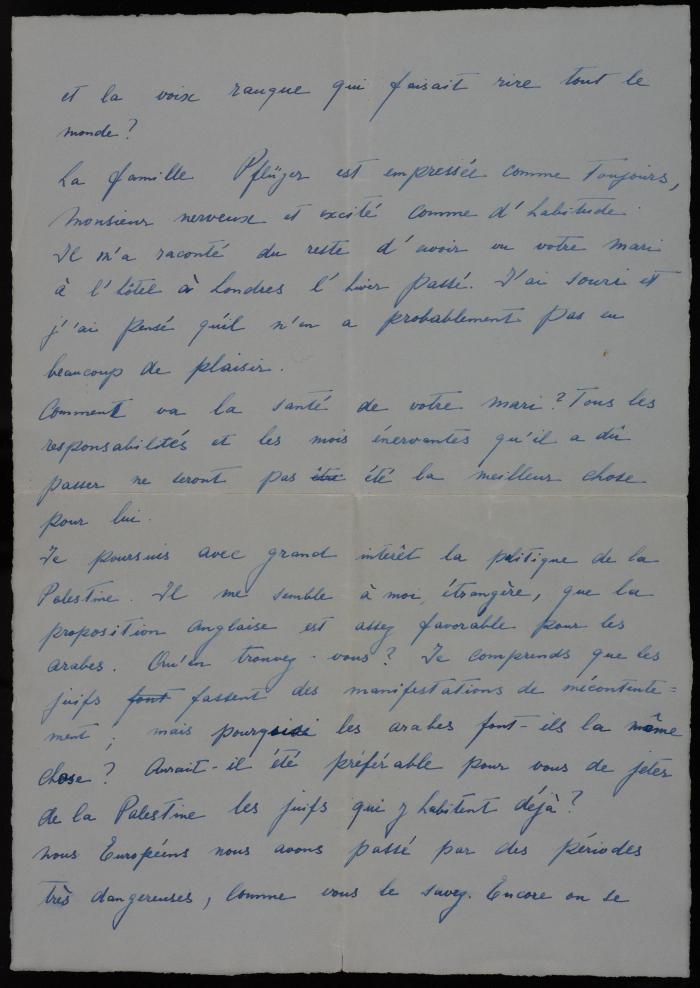 et la voix rauque qui faisait rire tout le
monde?
La famille Pflüger est empressée comme toujours,
Monsieur nerveux et excité comme d'habitude.
Il m'a raconté du reste d'avoir vu votre mari
à l'hôtel à Londres l'hiver passé. J'ai souri et
j'ai pensé qu'il n'en a probablement pas eu
beaucoup de plaisir.
Comment va la santé de votre mari? Tous les
responsabilités et les mois énervantes qu'il a dû
passer ne seront pas être été la meilleur chose
pour lui.
Je poursuis avec grand intérêt la politique de la
Palestine. Il me semble à moi, étrangère, que la
proposition anglaise est assez favorable pour les
arabes. Qu'en trouvez-vous? Je comprends que les
juifs font fassent des manifestations de mécontente=
ment; mais pourquoi les arabes font-ils la même
chose? Aurait-il été préférable pour vous de jeter
de la Palestine les juifs qui y habitent déjà?
Nous Européens nous avons passé par des périodes
très dangereuses, comme vous le savez. Encore on se